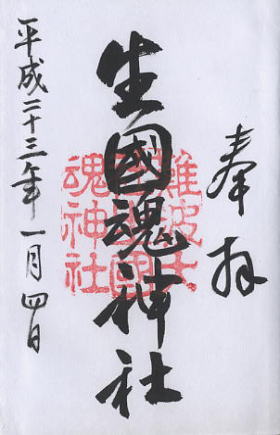 奉拝
生國魂神社
難波大
生國
魂神社
平成二十三年一月四日